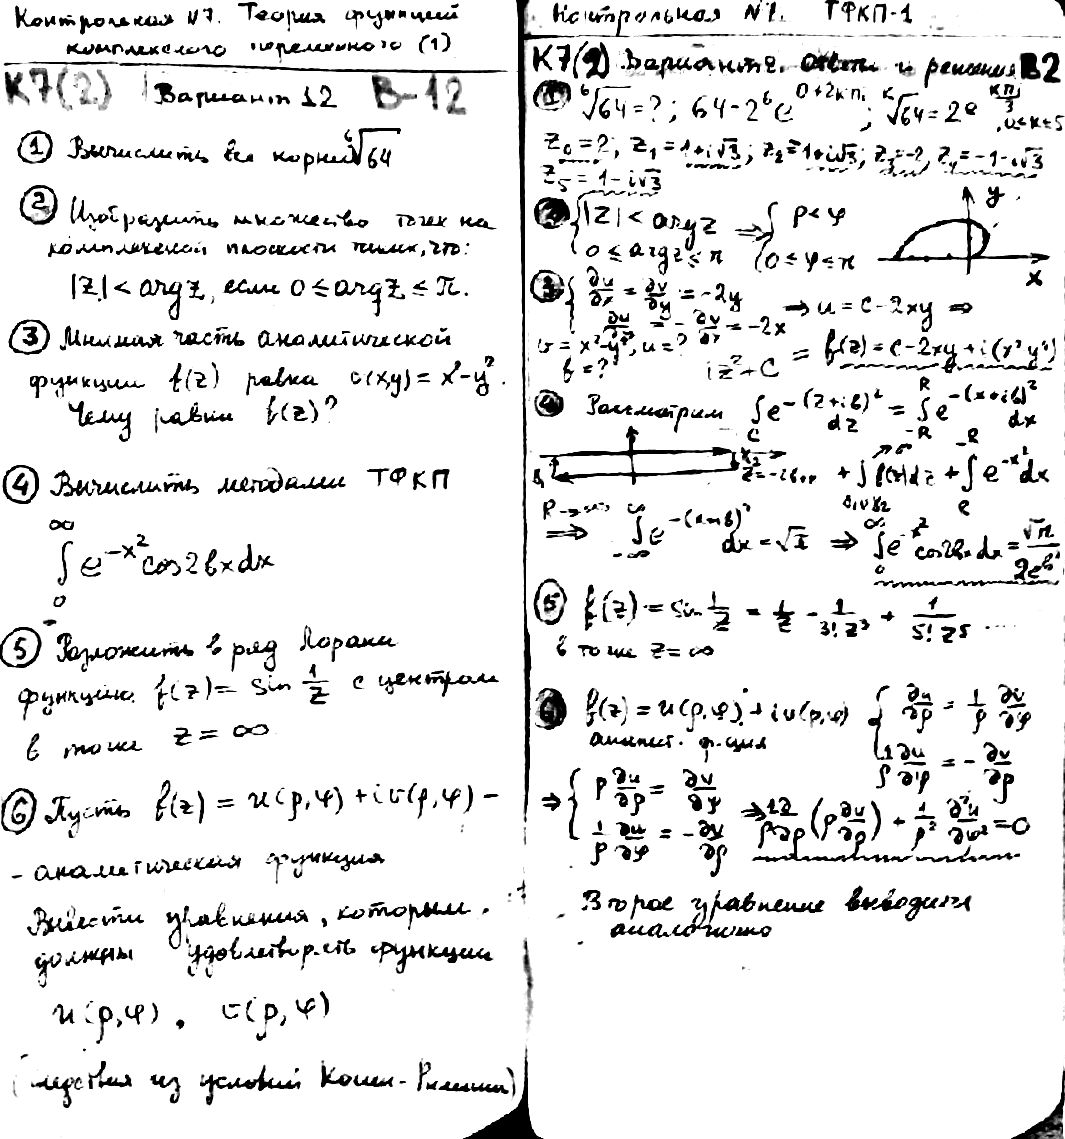 Контрольная №7. Теория функций
комплексного переменного (1)
К7(2) Вариант 12 В-12
① Вычислить все корни ⁶√64
② Изобразить множество точек на
комплексной плоскости таких, что:
|Z| < argZ, если 0 ≤ argZ ≤ π.
③ Мнимая часть аналитической
функции f(z) равна v(xy) = x²-y².
Чему равна f(z)?
④ Вычислить методами ТФКП
∞
∫ e^{-x²} cos2bxdx
0
⑤ Разложить в ряд Лорана
функцию f(z) = sin 1/z с центром
в точке z = ∞
⑥ Пусть f(z) = u(ρ,φ) + iv(ρ,φ) -
- аналитическая функция
Вывести уравнения, которым
должны удовлетворять функции
u(ρ,φ), v(ρ,φ)
(следствия из условий Коши-Римана)
Контрольная №1. ТФКП-1
К7(2) Вариант 2. Ответы и решения В2
① ⁶√64 = ?; 64 = 2⁶ e^{0+2kπi}; √64 = 2e^{kπi/3}, 0≤k≤5
Z₀ = 2; Z₁ = 1+i√3; Z₂ = 1+i√3; Z₃ = -2, Z₄ = -1-i√3
Z₅ = 1-i√3
② { |Z| < argZ 0 ≤ argZ ≤ π ⇒ { ρ < φ 0 ≤ φ ≤ π
y
x
③ { ∂u/∂x = ∂v/∂y = -2y
∂u/∂y = -∂v/∂x = -2x ⇒ u = c - 2xy ⇒
v = x²-y², u = ?
f = ? iz²+C = f(z) = c-2xy+i(x²-y²)
④ Рассмотрим ∫_C e^{-(z+ib)²} dz = ∫_{-R}^{R} e^{-(x+ib)²} dx
+ ∫ f(z)dz + ∫ e^{-x²}dx
R→∞ ⇒ ∫_{-∞}^{∞} e^{-(x+ib)²} dx = √π ⇒ ∫_0^∞ e^{-x²} cos2bx dx = √π/2e^{b²}
⑤ f(z) = sin 1/z = 1/z - 1/3!z³ + 1/5!z⁵ ....
в точке z = ∞
⑥ f(z) = u(ρ,φ) + iv(ρ,φ) { ∂u/∂ρ = 1/ρ ∂v/∂φ
аналит. ф-ция 1/ρ ∂u/∂φ = -∂v/∂ρ
⇒ { ρ ∂u/∂ρ = ∂v/∂φ
1/ρ ∂u/∂φ = -∂v/∂ρ ⇒ 1/ρ ∂/∂ρ (ρ ∂u/∂ρ) + 1/ρ² ∂²u/∂φ² = 0
Второе уравнение выводится
аналогично